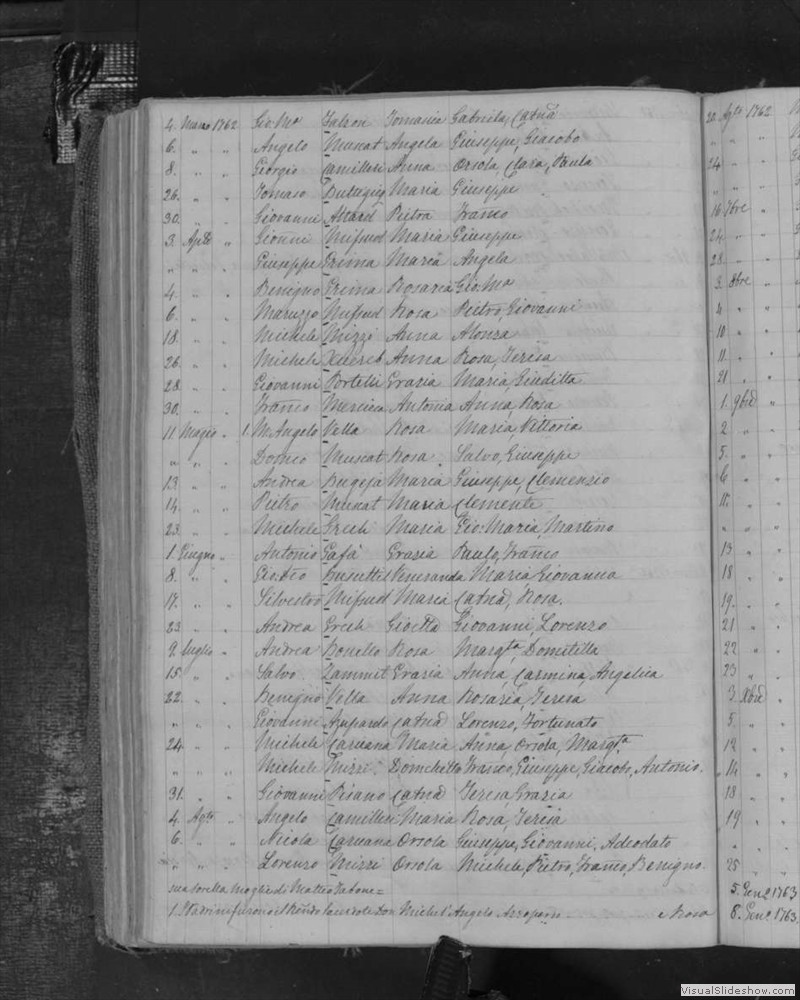 4. Marzo 1762 Gio. Ma Falzon Tomasia Gabriela, Catna
6. " " Angelo Muscat Angela Giuseppe, Giacobo
8. " " Giorgio Camilleri Anna Orsola, Clara, Paula
26. " " Tomaso Buttigieg Maria Giuseppe
30. " " Giovanni Attard Pietra Franco
3. Aple " Gionni Mifsud Maria Giuseppe
" " " Giuseppe Grima Maria Angela
4. " " Benigno Grima Rosaria Gio. Ma
6. " " Maruzzo Mifsud Rosa Pietro, Giovanni
18. " " Michele Mizzi Anna Alonza
26. " " Michele Xuereb Anna Rosa, Teresa
28. " " Giovanni Portelli Grazia Maria, Giuditta
30. " " Franco Mercieca Antonia Anna, Rosa
11 Magio " 1. M. Angelo Vella Rosa Maria, Vittoria
" " " Domco Muscat Rosa Salvo, Giuseppe
13 " " Andrea Bugeja Maria Giuseppe, Clemenzio
14. " " Pietro Muscat Maria Clemente
23 " " Michele Grech Maria Gio: Maria, Martino
1. Giugno " Antonio Gafà Grazia Paulo, Franco
8. " " Gio. Busuttil Veneranda Maria Giovanna
17. " " Silvestro Mifsud Maria Catna, Rosa.
23 " " Andrea Grech Giovanni, Lorenzo
9. Luglio " Andrea Bonello Rosa Margta, Domitilla
15. " " Salvo. Zammit Grazia Anna, Carmina, Angelica
22. " " Benigno Vella Anna Rosaria, Teresa
" " " Giovanni Catna Lorenzo, Fortunato
24. " " Michele Caruana Maria Anna, Orsola, Margta
" " " Michele Mizzi. Franco, Giuseppe, Giacobo, Antonio.
31. " " Giovanni Catna Teresa, Grazia
4 Agto " Angelo Camilleri Maria Rosa, Teresa
6. " " Nicola Caruana Orsola Giuseppe, Giovanni, Adeodato
" " " Lorenzo Mizzi Orsola Michele, Pietro, Franco, Benigno.
sua sorella moglie di Matteo Tabone =
1. Padrini furono il Rendo Sacerdote Don Michel' Angelo e Rosa
20. Agto 1762
" " "
24 " "
" " "
16 7bre "
24 " "
28 " "
3. 8bre "
4 " "
10 " "
11. " "
21 " "
1. 9bre "
2 " "
5. " "
6 " "
11. " "
" " "
13 " "
18 " "
19. " "
21 " "
22 " "
23 " "
3 Xbre "
5 " "
12 " "
" 14 " "
18 " "
19 " "
" " "
25 " "
5. Gene 1763
8. Gene 1763.
VisualSlideshow.com